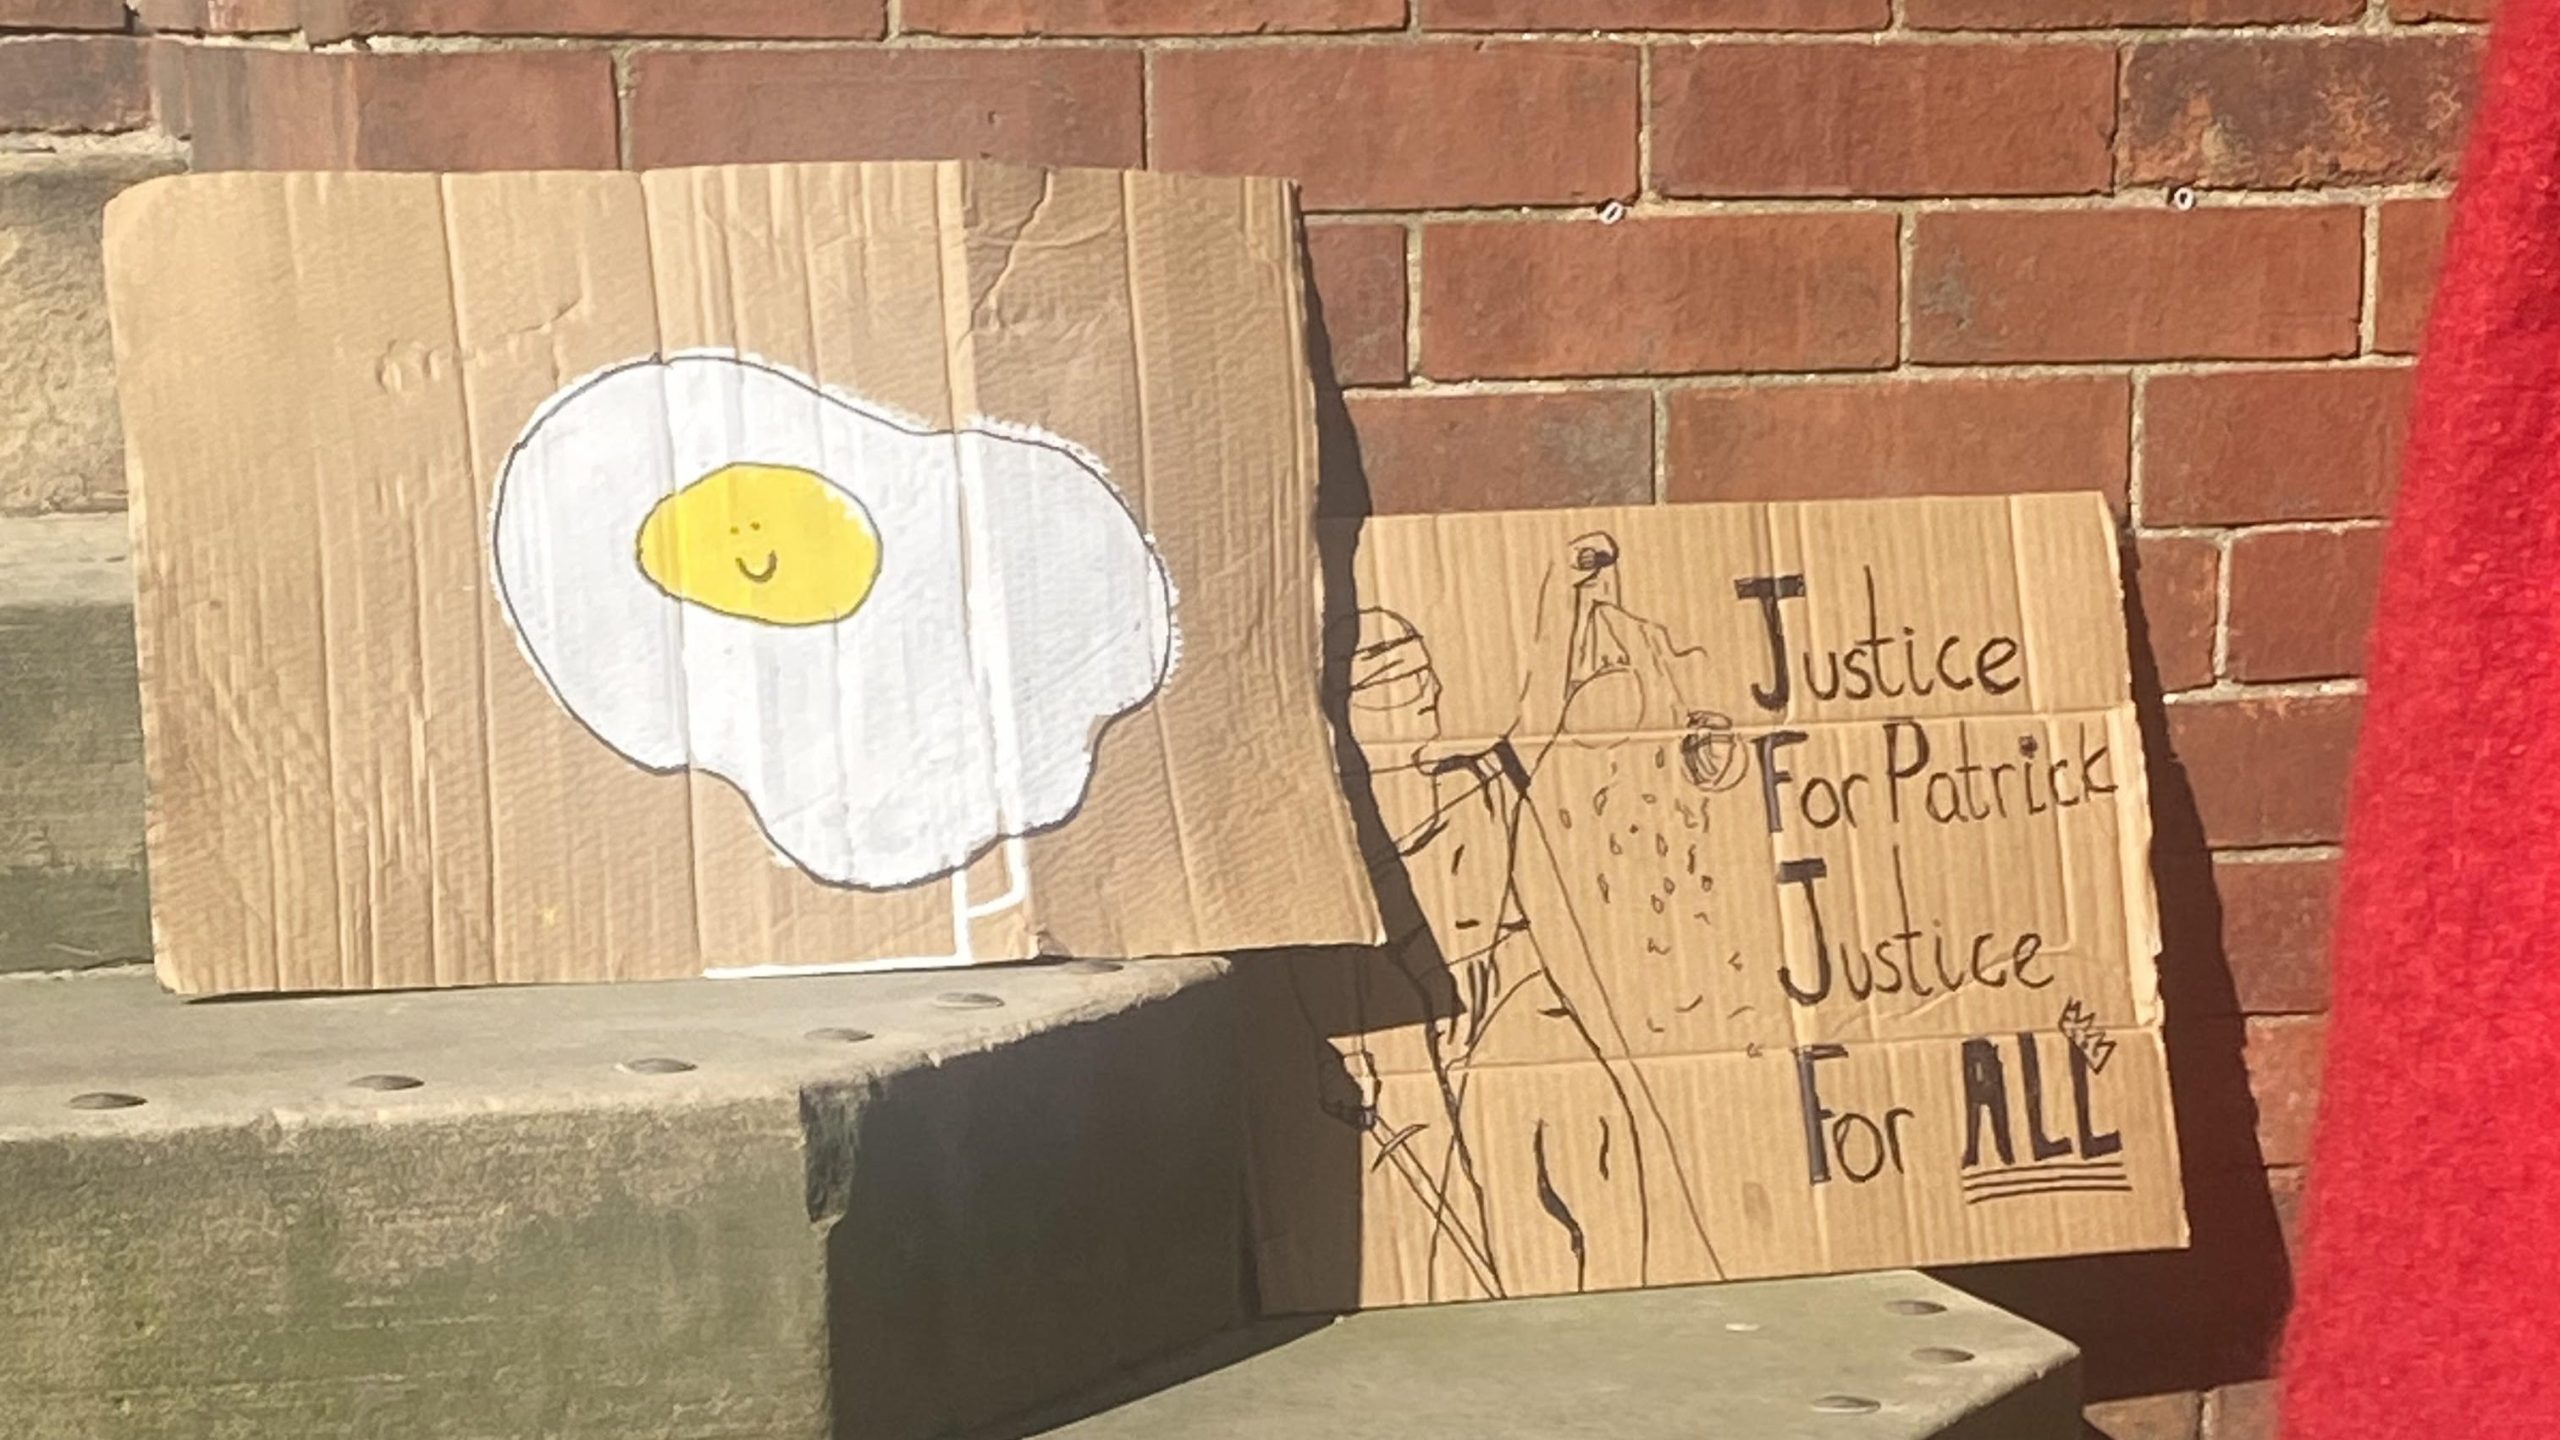 Justice
For Patrick
Justice
For ALL